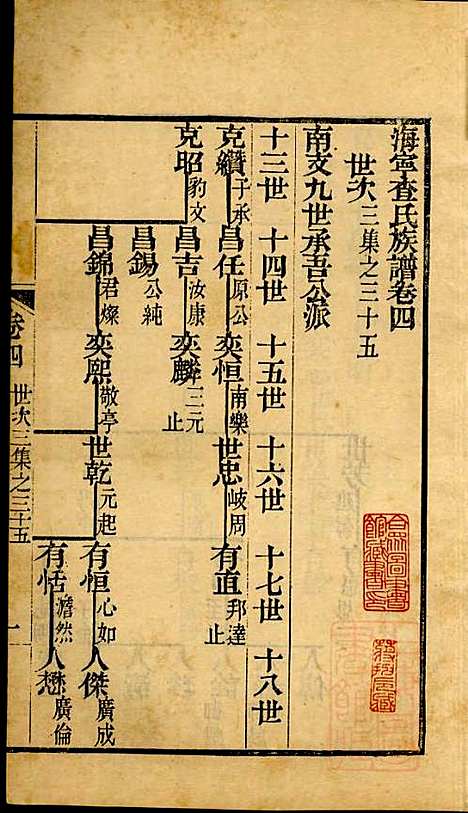 海寧查氏族譜卷四
世次三集之三十五
南支九世承吾公派
十三世 十四世 十五世 十六世 十七世 十八世
克纘子承 昌任原公 奕恒南樂 世忠岐周 有直邦達 止
克昭豹文 昌吉汝康 奕麟三元 止
昌錫公純
昌錦君燦 奕熙敬亭 世乾元起 有恒心如 人傑廣成
有恬澹然 人懋廣倫
卷四 世次三集之三十五 一